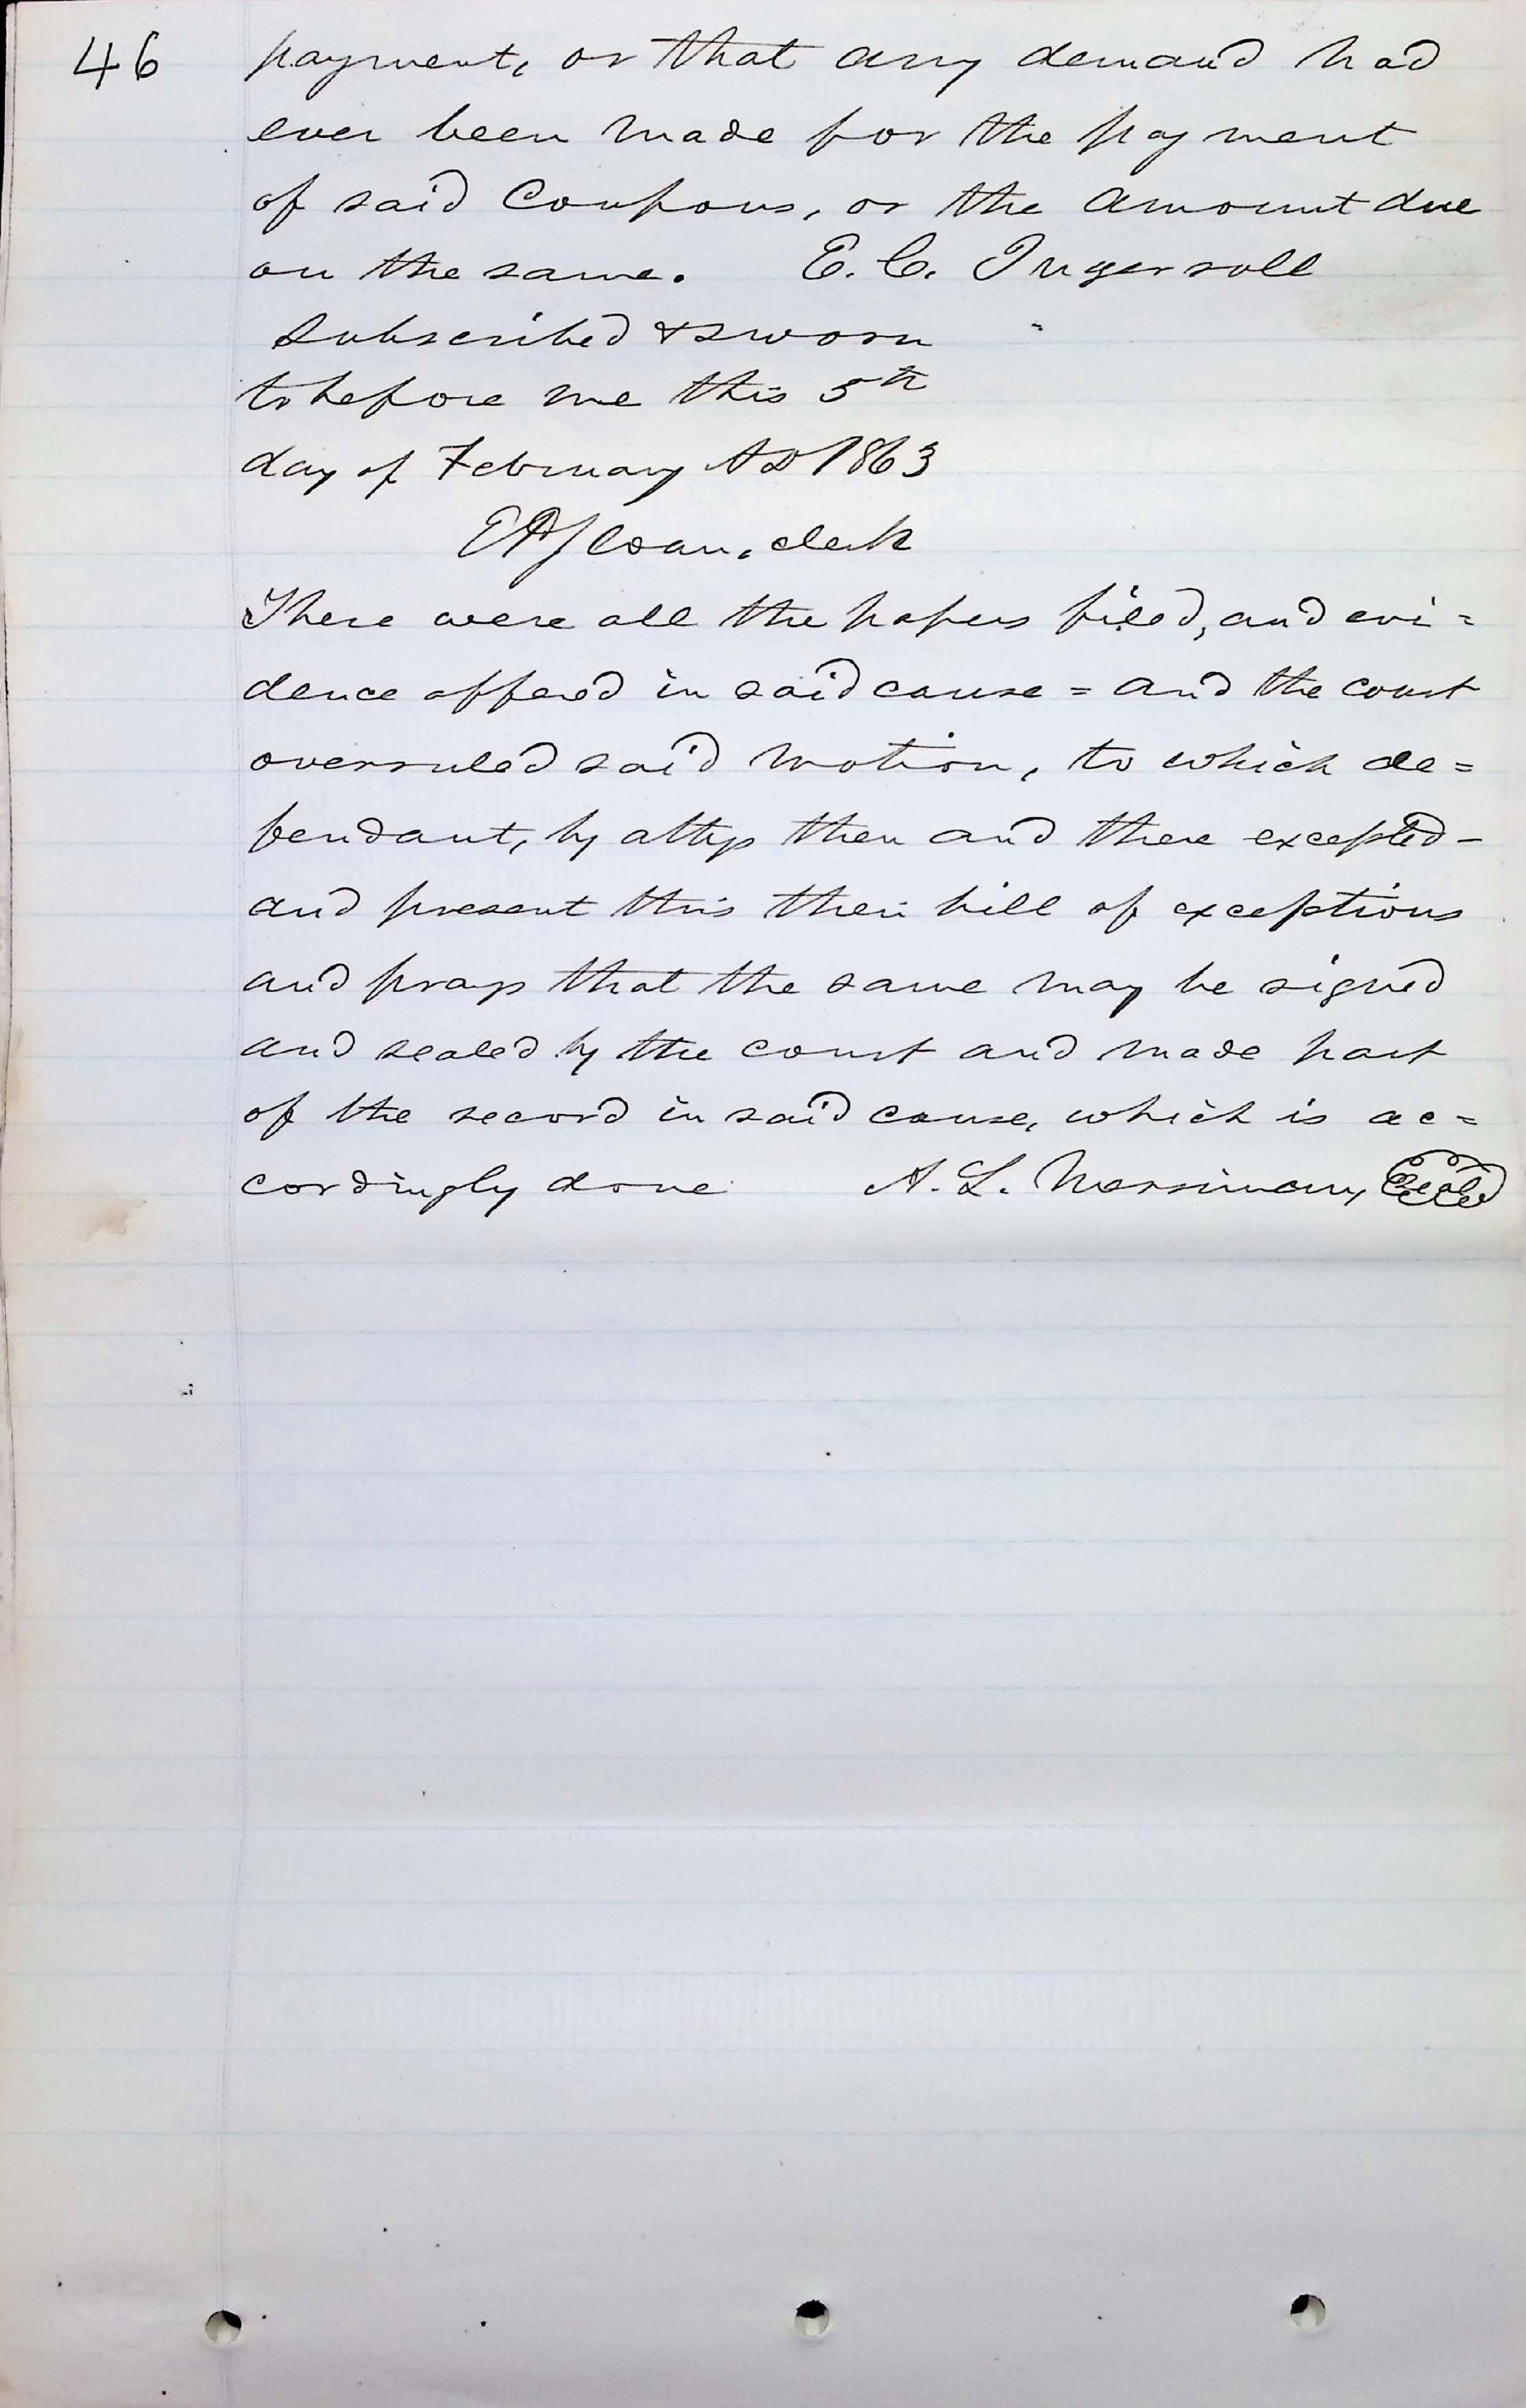 46
payment, or that any demand had
ever been made for the payment
of said Coupons, or the amount due
on the same. E. C. Ingersoll
Subscribed & sworn
to before me this 5th
day of February AD 1863
E P Sloan, clerk
These were all the papers filed, and evi=
dence offered in said cause = and the court
overruled said motion, to which de=
fendant, by attys then and there excepted -
and present this their bill of exceptions
and prays that the same may be signed
and sealed by the court and made part
of the record in said cause, which is ac=
cordingly done A. L. Merriman, Seal